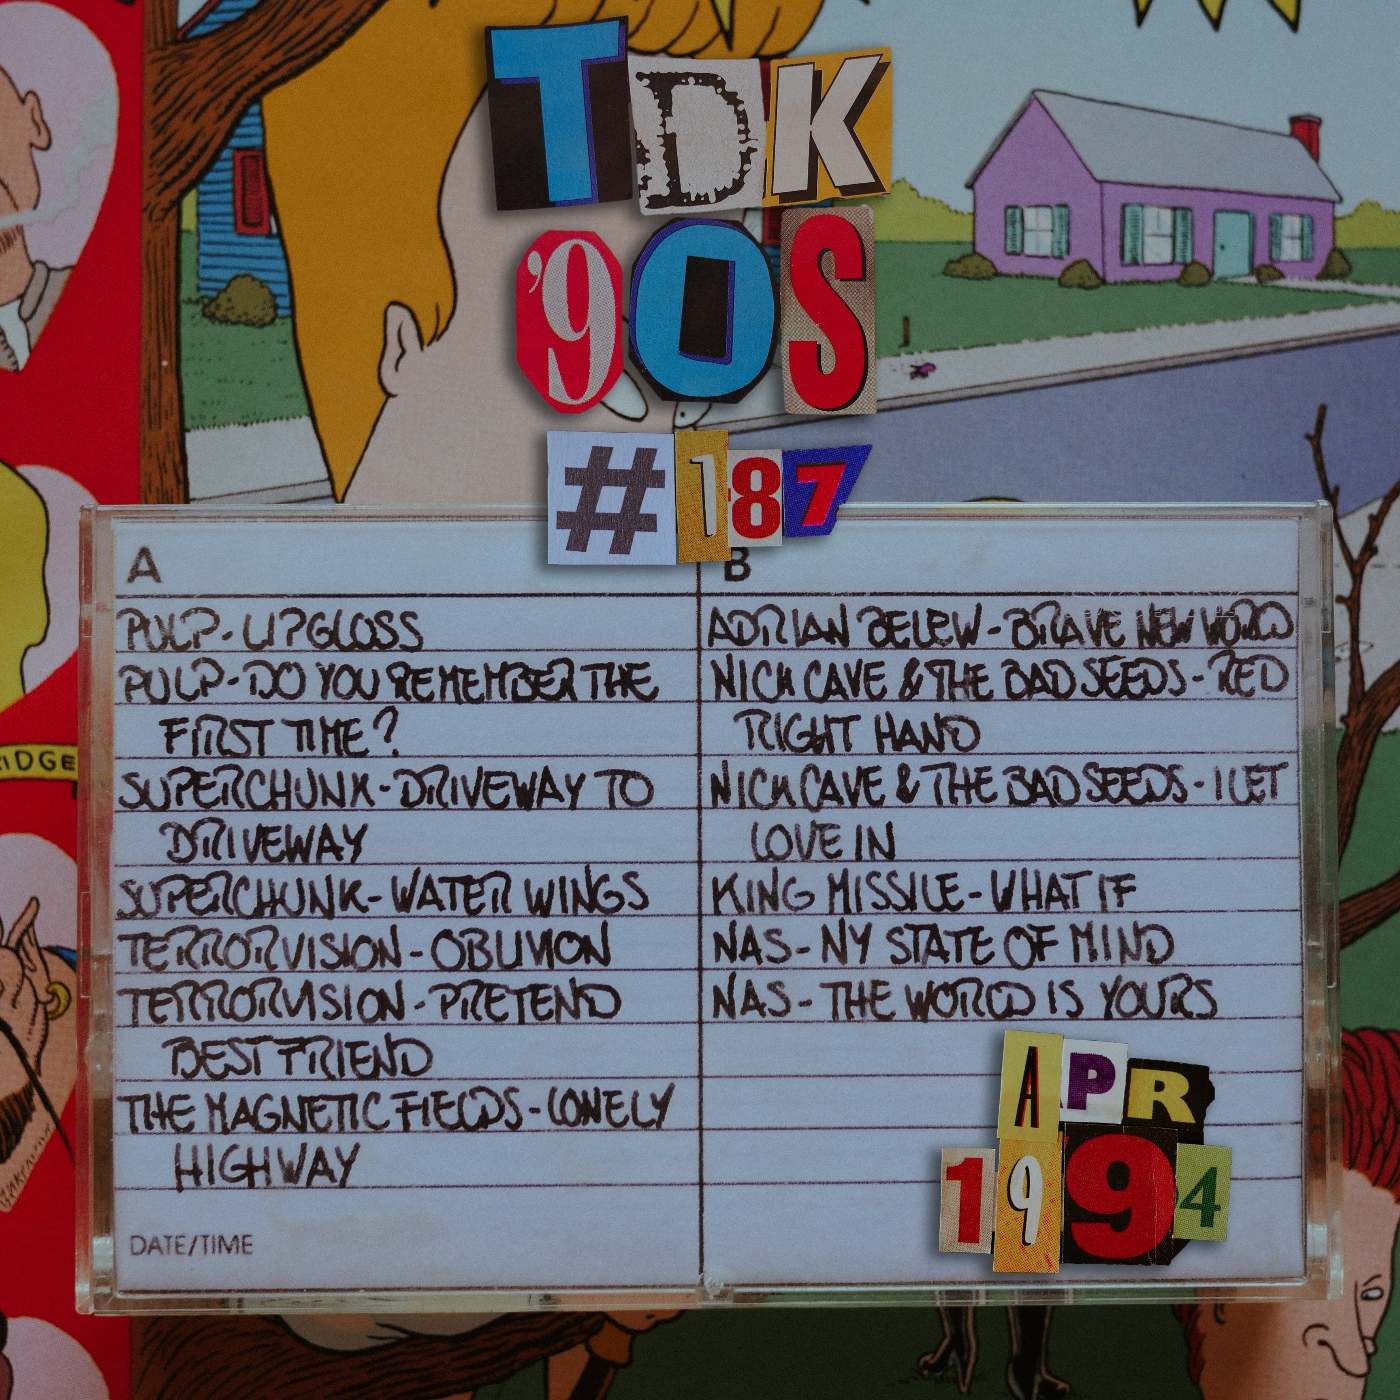 TDK
'90S
#187
A B
PULP - LIPGLOSS
PULP - DO YOU REMEMBER THE
FIRST TIME?
SUPERCHUNK - DRIVEWAY TO
DRIVEWAY
SUPERCHUNK - WATER WINGS
TERRORVISION - OBLIVION
TERRORVISION - PRETEND
BEST FRIEND
THE MAGNETIC FIELDS - LONELY
HIGHWAY
DATE/TIME
ADRIAN BELEW - BRAVE NEW WORLD
NICK CAVE & THE BAD SEEDS - RED
RIGHT HAND
NICK CAVE & THE BAD SEEDS - I LET
LOVE IN
KING MISSILE - WHAT IF
NAS - NY STATE OF MIND
NAS - THE WORLD IS YOURS
APR
1994
IDGE